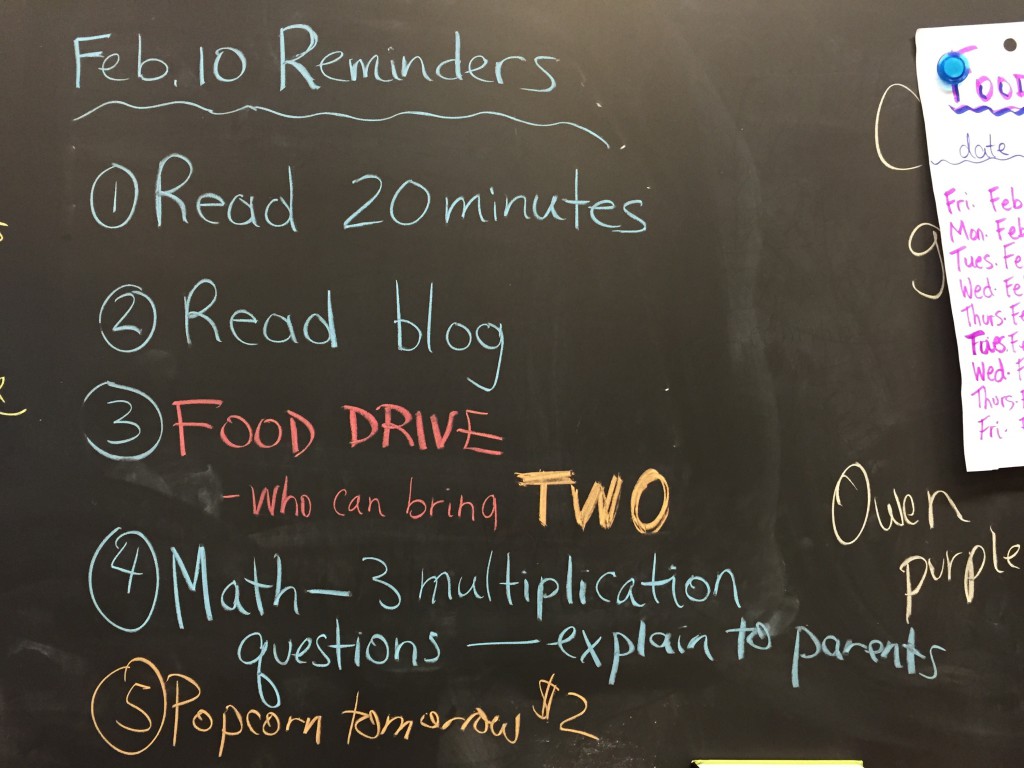 Feb. 10 Reminders
① Read 20 minutes
② Read blog
③ FOOD DRIVE
- Who can bring TWO
④ Math — 3 multiplication
questions — explain to parents
⑤ Popcorn tomorrow $2
date
Fri. Feb
Mon. Feb
Tues. Fe
Wed. Fe
Thurs. Fe
Tues. Fe
Wed. F
Thurs.
Fri.
Owen
purple